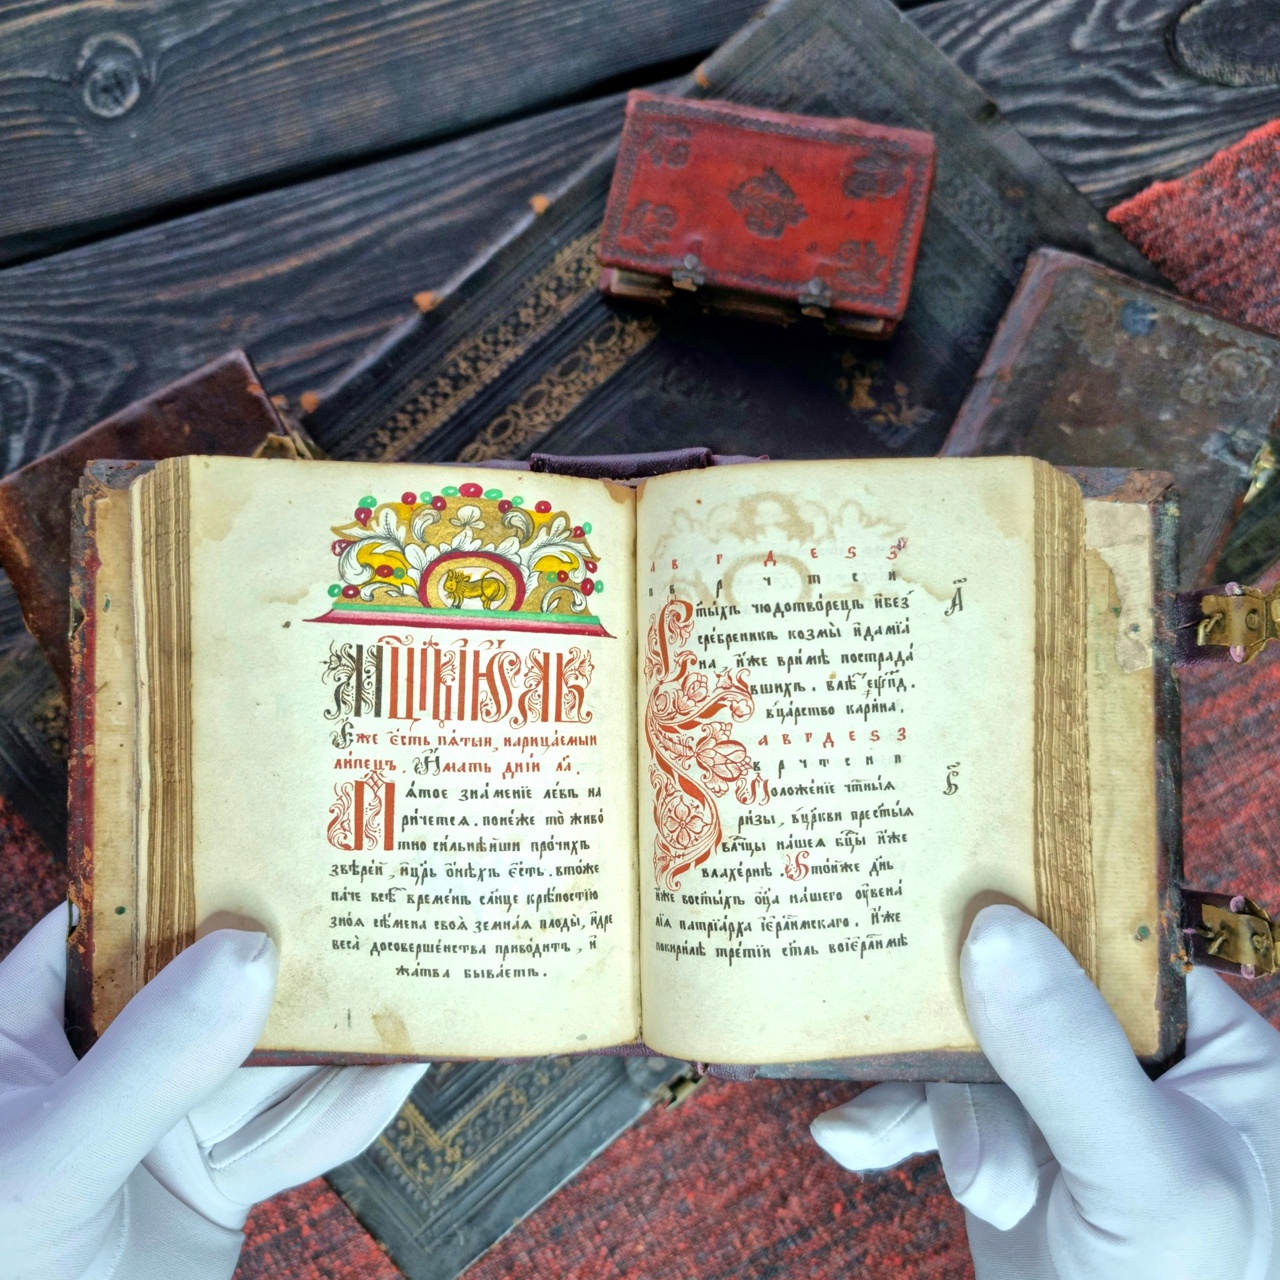 Еже є҆сть пѧ́тыи, нарица́емыи
ли́пецъ. И҆мать днїи ла҃.
Пѧ́тое зна́менїе ле́въ на
ри́чется. поне́же то̀ живо́
тно си́льнѣйши про́чихъ
звѣре́й, и҆цр҃ь ѻ҆нѣ́хъ є҆́сть. вто́же
па́че всегѡ̀ вре́менъ со́лнце крѣ́постїю
зно́ѧ сѣ́мена своѧ̀ земнаѧ плоды̀, и҆дре
веса̀ досовершє́нства приво́дитъ, и҆
жа́тва быва́етъ.
а в г д е ѕ з
в р ч т с и
ст҃ы́хъ чюдотво́рецъ и҆без̾
сре́бреникъ козмы̀ и҆дамїа́
на, и҆́жеври́мѣ пострада́
вшихъ.
вца́рство кари́на.
а҃
а в г д е ѕ з
в р ч т с и п
Положе́нїе чтⷭ҇ны́ѧ
ри́зы, вцр҃кви прест҃ы́ѧ
вл҃чцы на́шеѧ бц҃ы и҆́же
влахе́рнѣ. Вто́йже дн҃ь
и҆́же восты́хъ ѻ҆ц҃а на́шего
лїѧ патрїа́рха і҆єрⷭ҇ли́мскаго. и҆́же
покири́лѣ тре́тїи
в҃